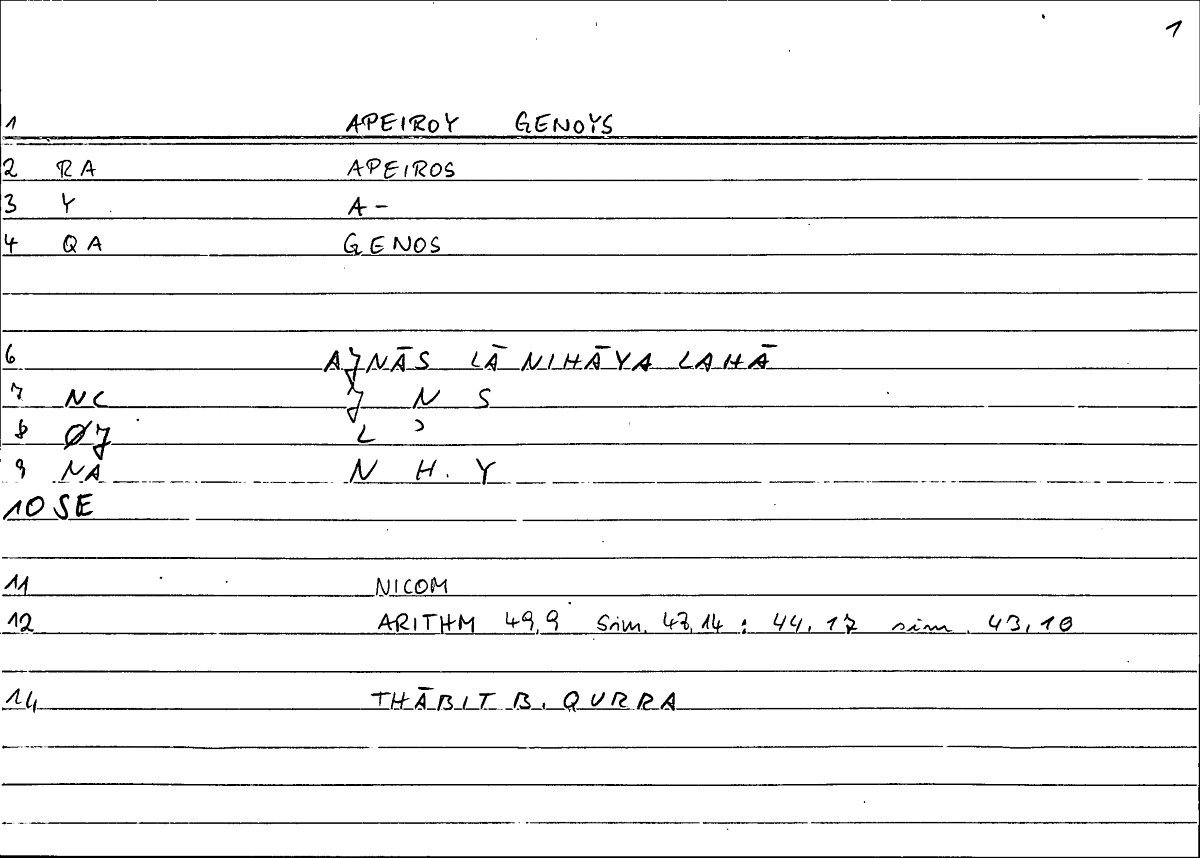 1
1 APEIROY GENOYS
2 RA APEIROS
3 Y A-
4 QA GENOS
6 AJNĀS LĀ NIHĀYA LAHĀ
7 NC J N S
8 ØJ L ʾ
9 NA N H. Y
10 SE
11 NICOM
12 ARITHM 49,9 Sim. 47,14 : 44,17 sim. 43,10
14 THĀBIT B. QURRA